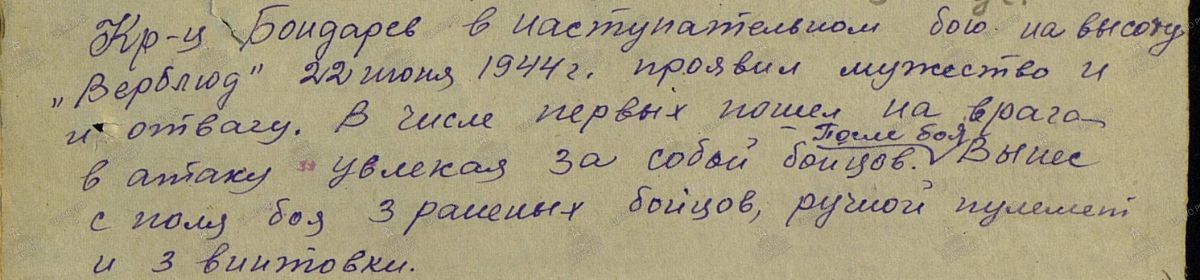 Кр-ц Бондарев в наступательном бою на высоту
„Верблюд" 22 июня 1944 г. проявил мужество и
и отвагу. В числе первых пошел на врага
в атаку увлекая за собой бойцов. После боя Вынес
с поля боя 3 раненых бойцов, ручной пулемет
и 3 винтовки.